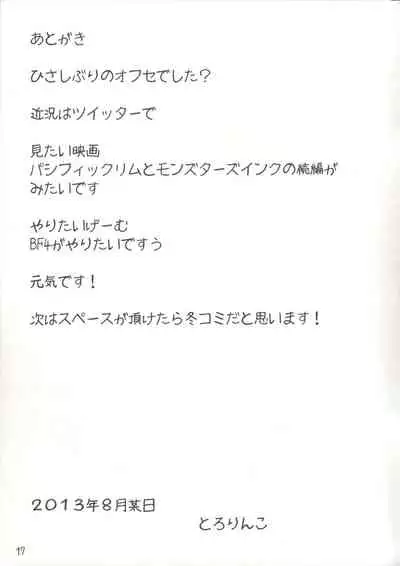 あとがき
ひさしぶりのオフセでした？
近況はツイッターで
見たい映画
パシフィックリムとモンズターズインクの続編が
みたいです
やりたいげーむ
BF4がやりたいですう
元気です！
次はスペースが頂けたら冬コミだと思います！
２０１３年８月某日
とろりんこ
17